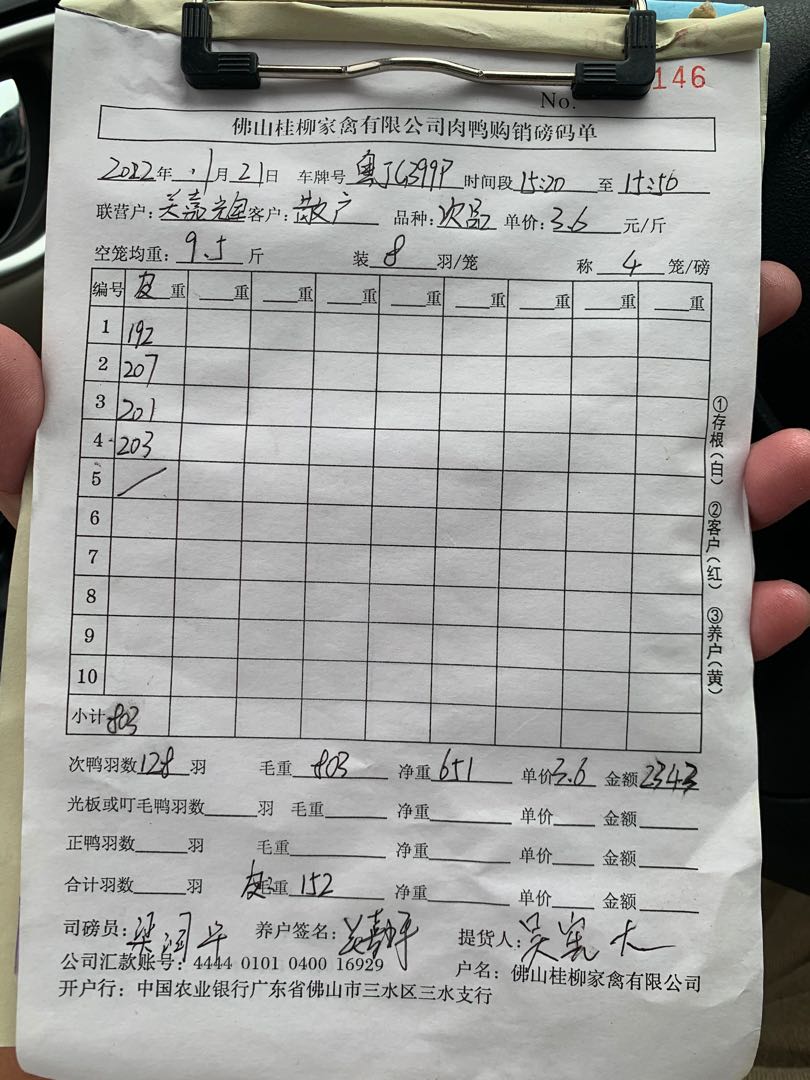 No. 146
佛山桂柳家禽有限公司肉鸭购销磅码单
2022年 1月21日 车牌号 粤JG399P 时间段15:20 至 15:50
联营户: 关嘉耀 客户: 散户 品种: 次品 单价: 3.6 元/斤
空笼均重: 9.5 斤 装 8 羽/笼 称 4 笼/磅
编号 重 重 重 重 重 重 重 重 重
1 192
2 207
3 201
4 203
5 /
6
7
8
9
10
小计 803
①存根(白) ②客户(红) ③养户(黄)
次鸭羽数128羽 毛重 803 净重 651 单价3.6 金额2343
光板或叮毛鸭羽数 羽 毛重 净重 单价 金额
正鸭羽数 羽 毛重 净重 单价 金额
合计羽数 羽 毛重 152 净重 单价 金额
司磅员: 梁润 养户签名: 提货人: 吴
公司汇款账号: 4444 0101 0400 16929 户名: 佛山桂柳家禽有限公司
开户行: 中国农业银行广东省佛山市三水区三水支行